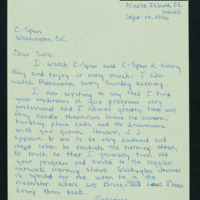 Marco Island, FL
Sept. 19, 1994
C-Span
Washington, D.C.
Dear Sirs:
I watch C-Span and C-Span 2 every
day and enjoy it very much. I also
watch Booknotes every Sunday evening.
I am writing to say that I find
your moderators of your programs very
professional and I admire greatly how well
they handle themselves before the camera,
handling phone calls and the discussions
with your guests. However,
appears to me to be very awkward and
inept when he conducts the morning show,
so much so that I generally turn off
your program and switch to the regular
network morning shows.
is spoiled for me when he is the
moderator. Where are Bruce, and Lew? Please
bring them back.
Sincerely